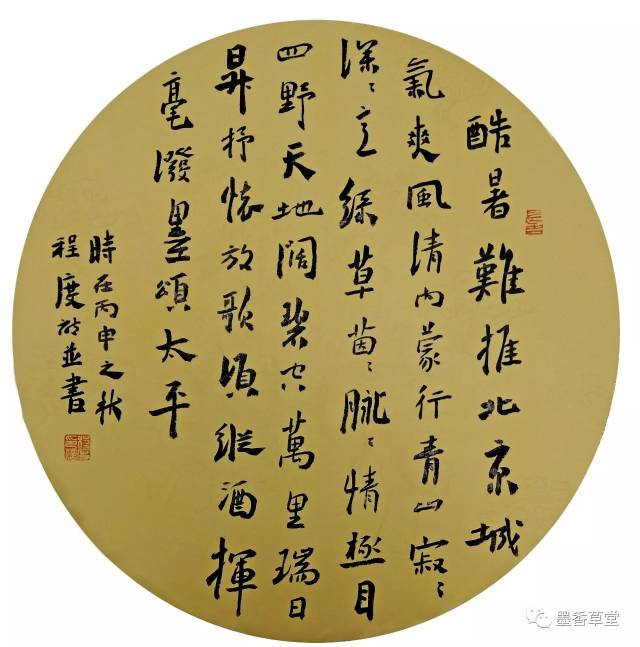 酷暑難推北京城
氣爽風清内蒙行青山寂々
深々意綠草茵々脉々情極目
四野天地闊碧空萬里瑞日
昇抒懷放歌須縱酒揮
毫潑墨頌太平
時在丙申之秋
程度詩並書
墨香草堂